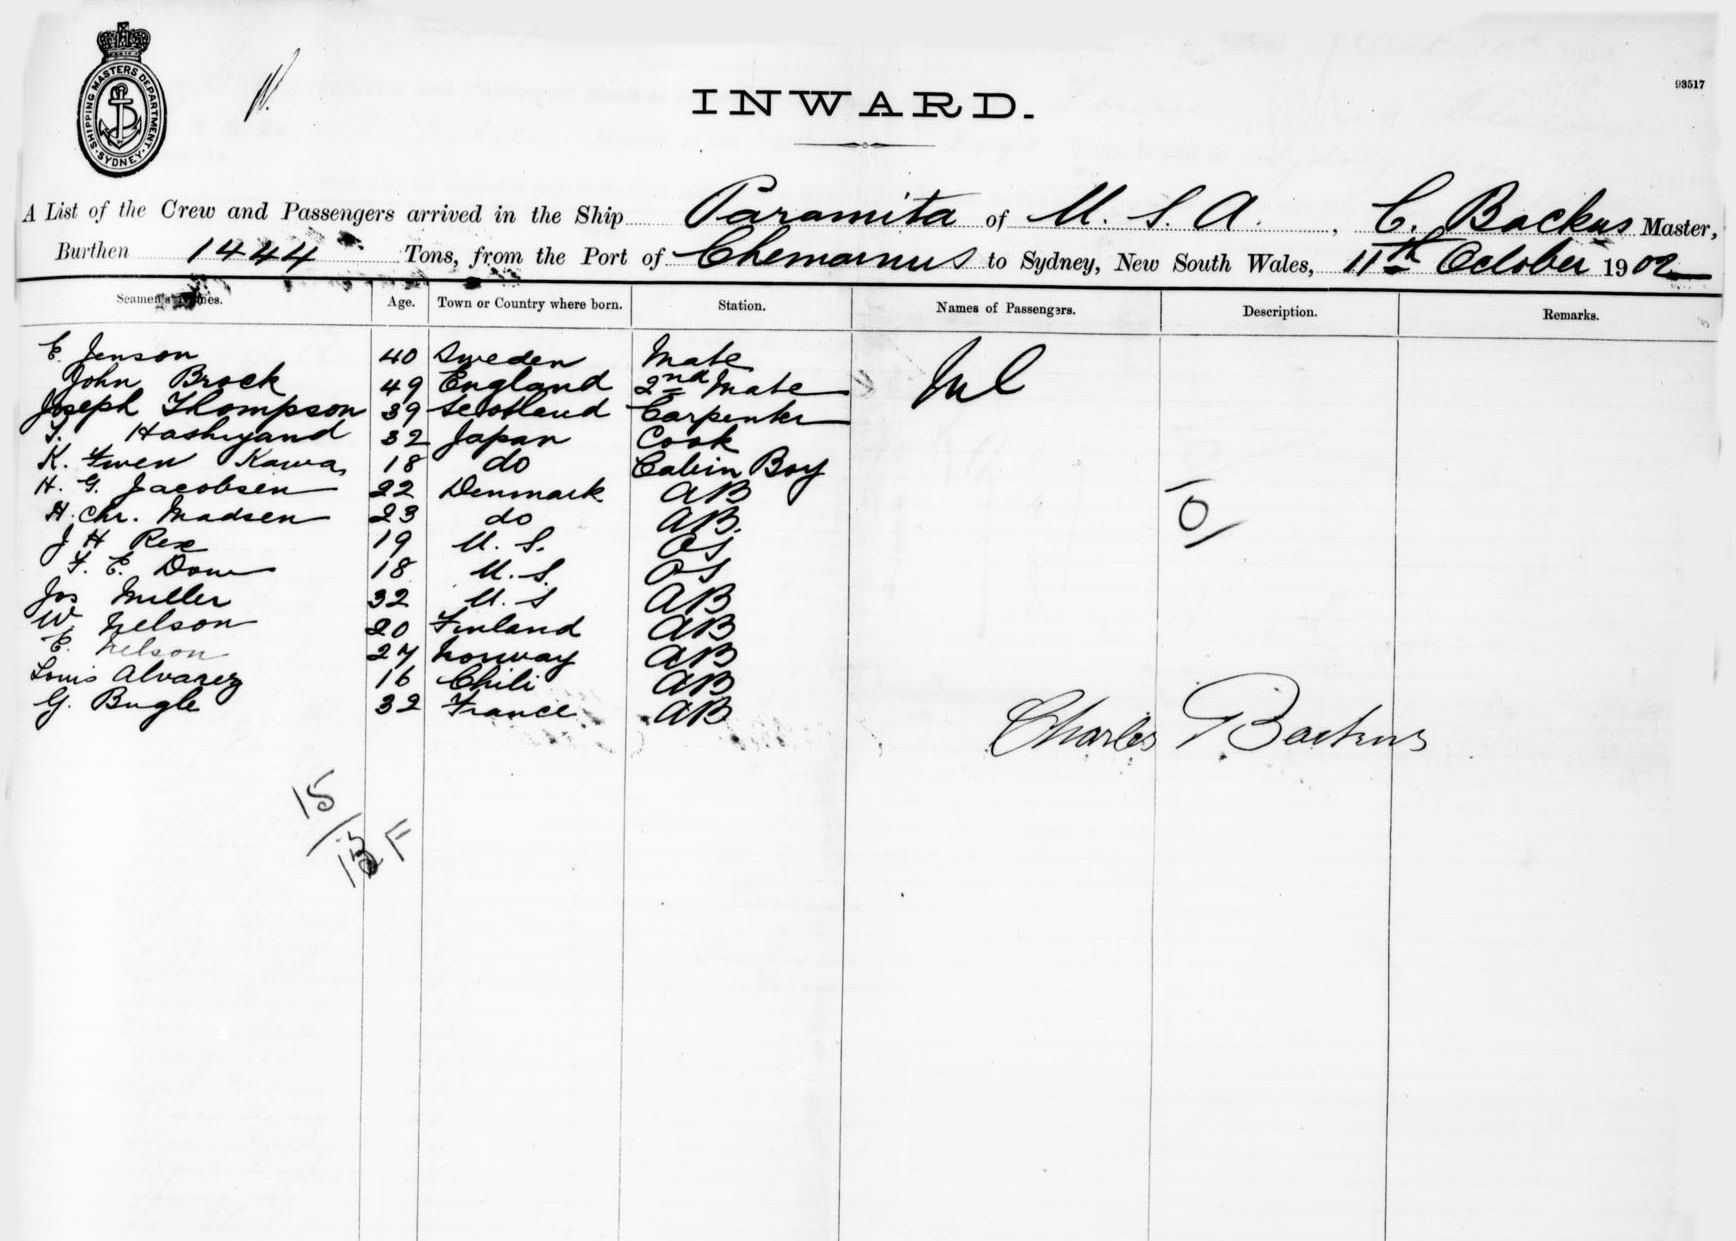 SHIPPING MASTERS DEPARTMENT
SYDNEY
INWARD.
93517
A List of the Crew and Passengers arrived in the Ship Paramita of U. S. A. , C. Backus Master,
Burthen 1444 Tons, from the Port of Chemainus to Sydney, New South Wales, 11th October 1902
Seamen's Names. Age. Town or Country where born. Station. Names of Passengers. Description. Remarks.
E. Jenson 40 Sweden Mate Nil
John Brock 49 England 2nd Mate
Joseph Thompson 39 Scotland Carpenter
32 Japan Cook
K. Kawa 18 do Cabin Boy
H. G. Jacobsen 22 Denmark AB
H. Chr. Madsen 23 do AB.
J H Rex 19 U. S. OS
F. E. 18 U. S. OS
Jos Miller 32 U. S AB
W. Nelson 20 Finland AB
E. Nelson 27 Norway AB
Louis Alvarez 16 Chili AB
G. Bugle 32 France AB
Charles Backus
15
F